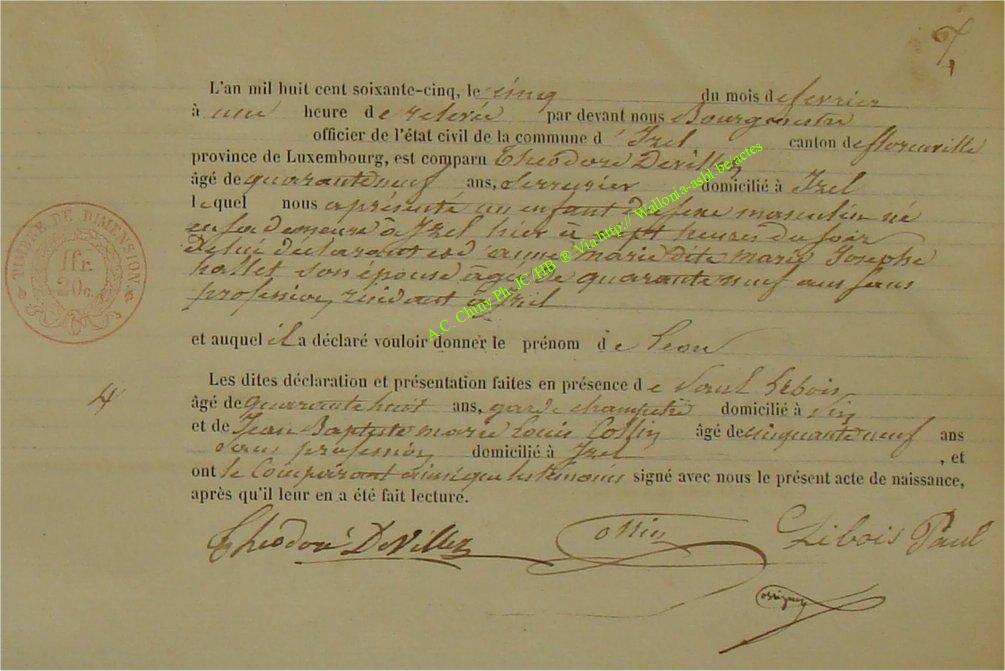 7
L'an mil huit cent soixante-cinq, le cinq du mois de fevrier
à une heure de relevée par devant nous Bourgmestre
officier de l'état civil de la commune d'Izel canton de florenville
province de Luxembourg, est comparu Théodore Devillez
âgé de quarante neuf ans, Serrurier domicilié à Izel
lequel nous a présenté un enfant de sexe masculin né
en sa demeure à Izel hier à sept heures du soir
de lui déclarant et d'anne marie dite marie Joseph
hallet son épouse agée de quarante neuf ans sans
profession, résidant à Izel
et auquel il a déclaré vouloir donner le prénom de Leon
Les dites déclaration et présentation faites en présence de Paul Lebois
âgé de quarante huit ans, garde champetre domicilié à
et de Jean Baptiste marie Louis Collin âgé de cinquante neuf ans
Sans profession domicilié à Izel, et
ont le Comparant ainsi que les témoins signé avec nous le présent acte de naissance,
après qu'il leur en a été fait lecture.
Théodore DeVillez Collin Lebois Paul
TIMBRE DE DIMENSION
1fr.
20c.
4
A.C. Chiny Ph. JC /HB ® Via http:// Wallonia-asbl.be/actes